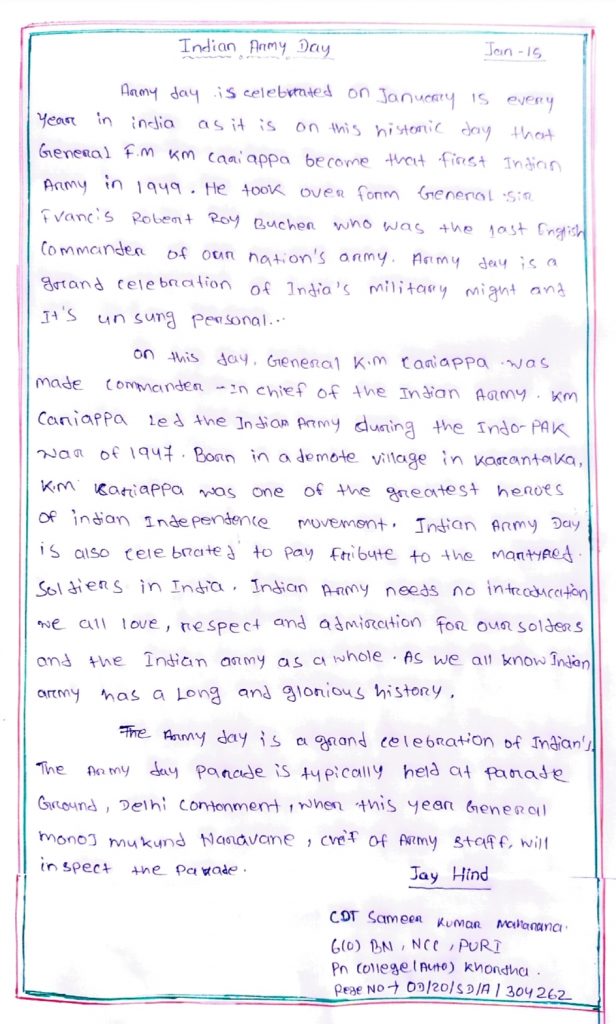 Indian Army Day
Jan-15
Army day is celebrated on January 15 every
Year in india as it is on this historic day that
General F.M KM Cariappa become that first Indian
Army in 1949. He took over form General sir
Francis Robert Roy Bucher who was the last English
Commander of our nation's army. Army day is a
grand celebration of India's military might and
It's unsung personal...
on this day, General K.M Cariappa was
made commander-In chief of the Indian Army. KM
Cariappa Led the Indian Army during the Indo-PAK
War of 1947. Born in a demote village in Karantaka,
K.M. Kariappa was one of the greatest heroes
of indian Independence movement. Indian Army Day
is also celebrated to pay tribute to the martyred
Soldiers in India. Indian Army needs no introducation
we all love, respect and admiration for our solders
and the Indian army as a whole. As we all know Indian
army has a Long and glorious history.
The Army day is a grand celebration of Indian's.
The Army day Parade is typically held at Parade
Ground, Delhi Contonment, when this year General
monoj mukund Naravane, of Army staff, will
inspect the Parade.
Jay Hind
CDT Sameer Kumar Maharana.
6(O) BN, NCC, PURI
Pn college (Auto) Khordha.
Rege NO → OD/20/SD/A/304262